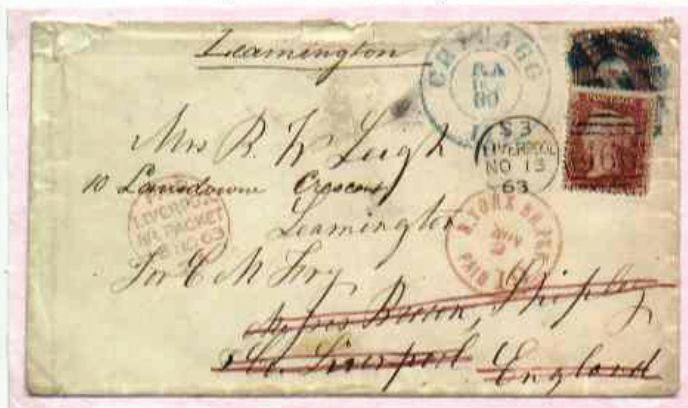 Leamington
CHICAGO
30
S3
LIVERPOOL
NO 13
63
Mrs B. W. Leigh
10 Lansdowne Crescent
LIVERPOOL
BR. PACKET
NO 63
Leamington
N. YORK BR. PKT
NOV
PAID
For C M Fry
Messrs Brown, Shipley
& Co. Liverpool England